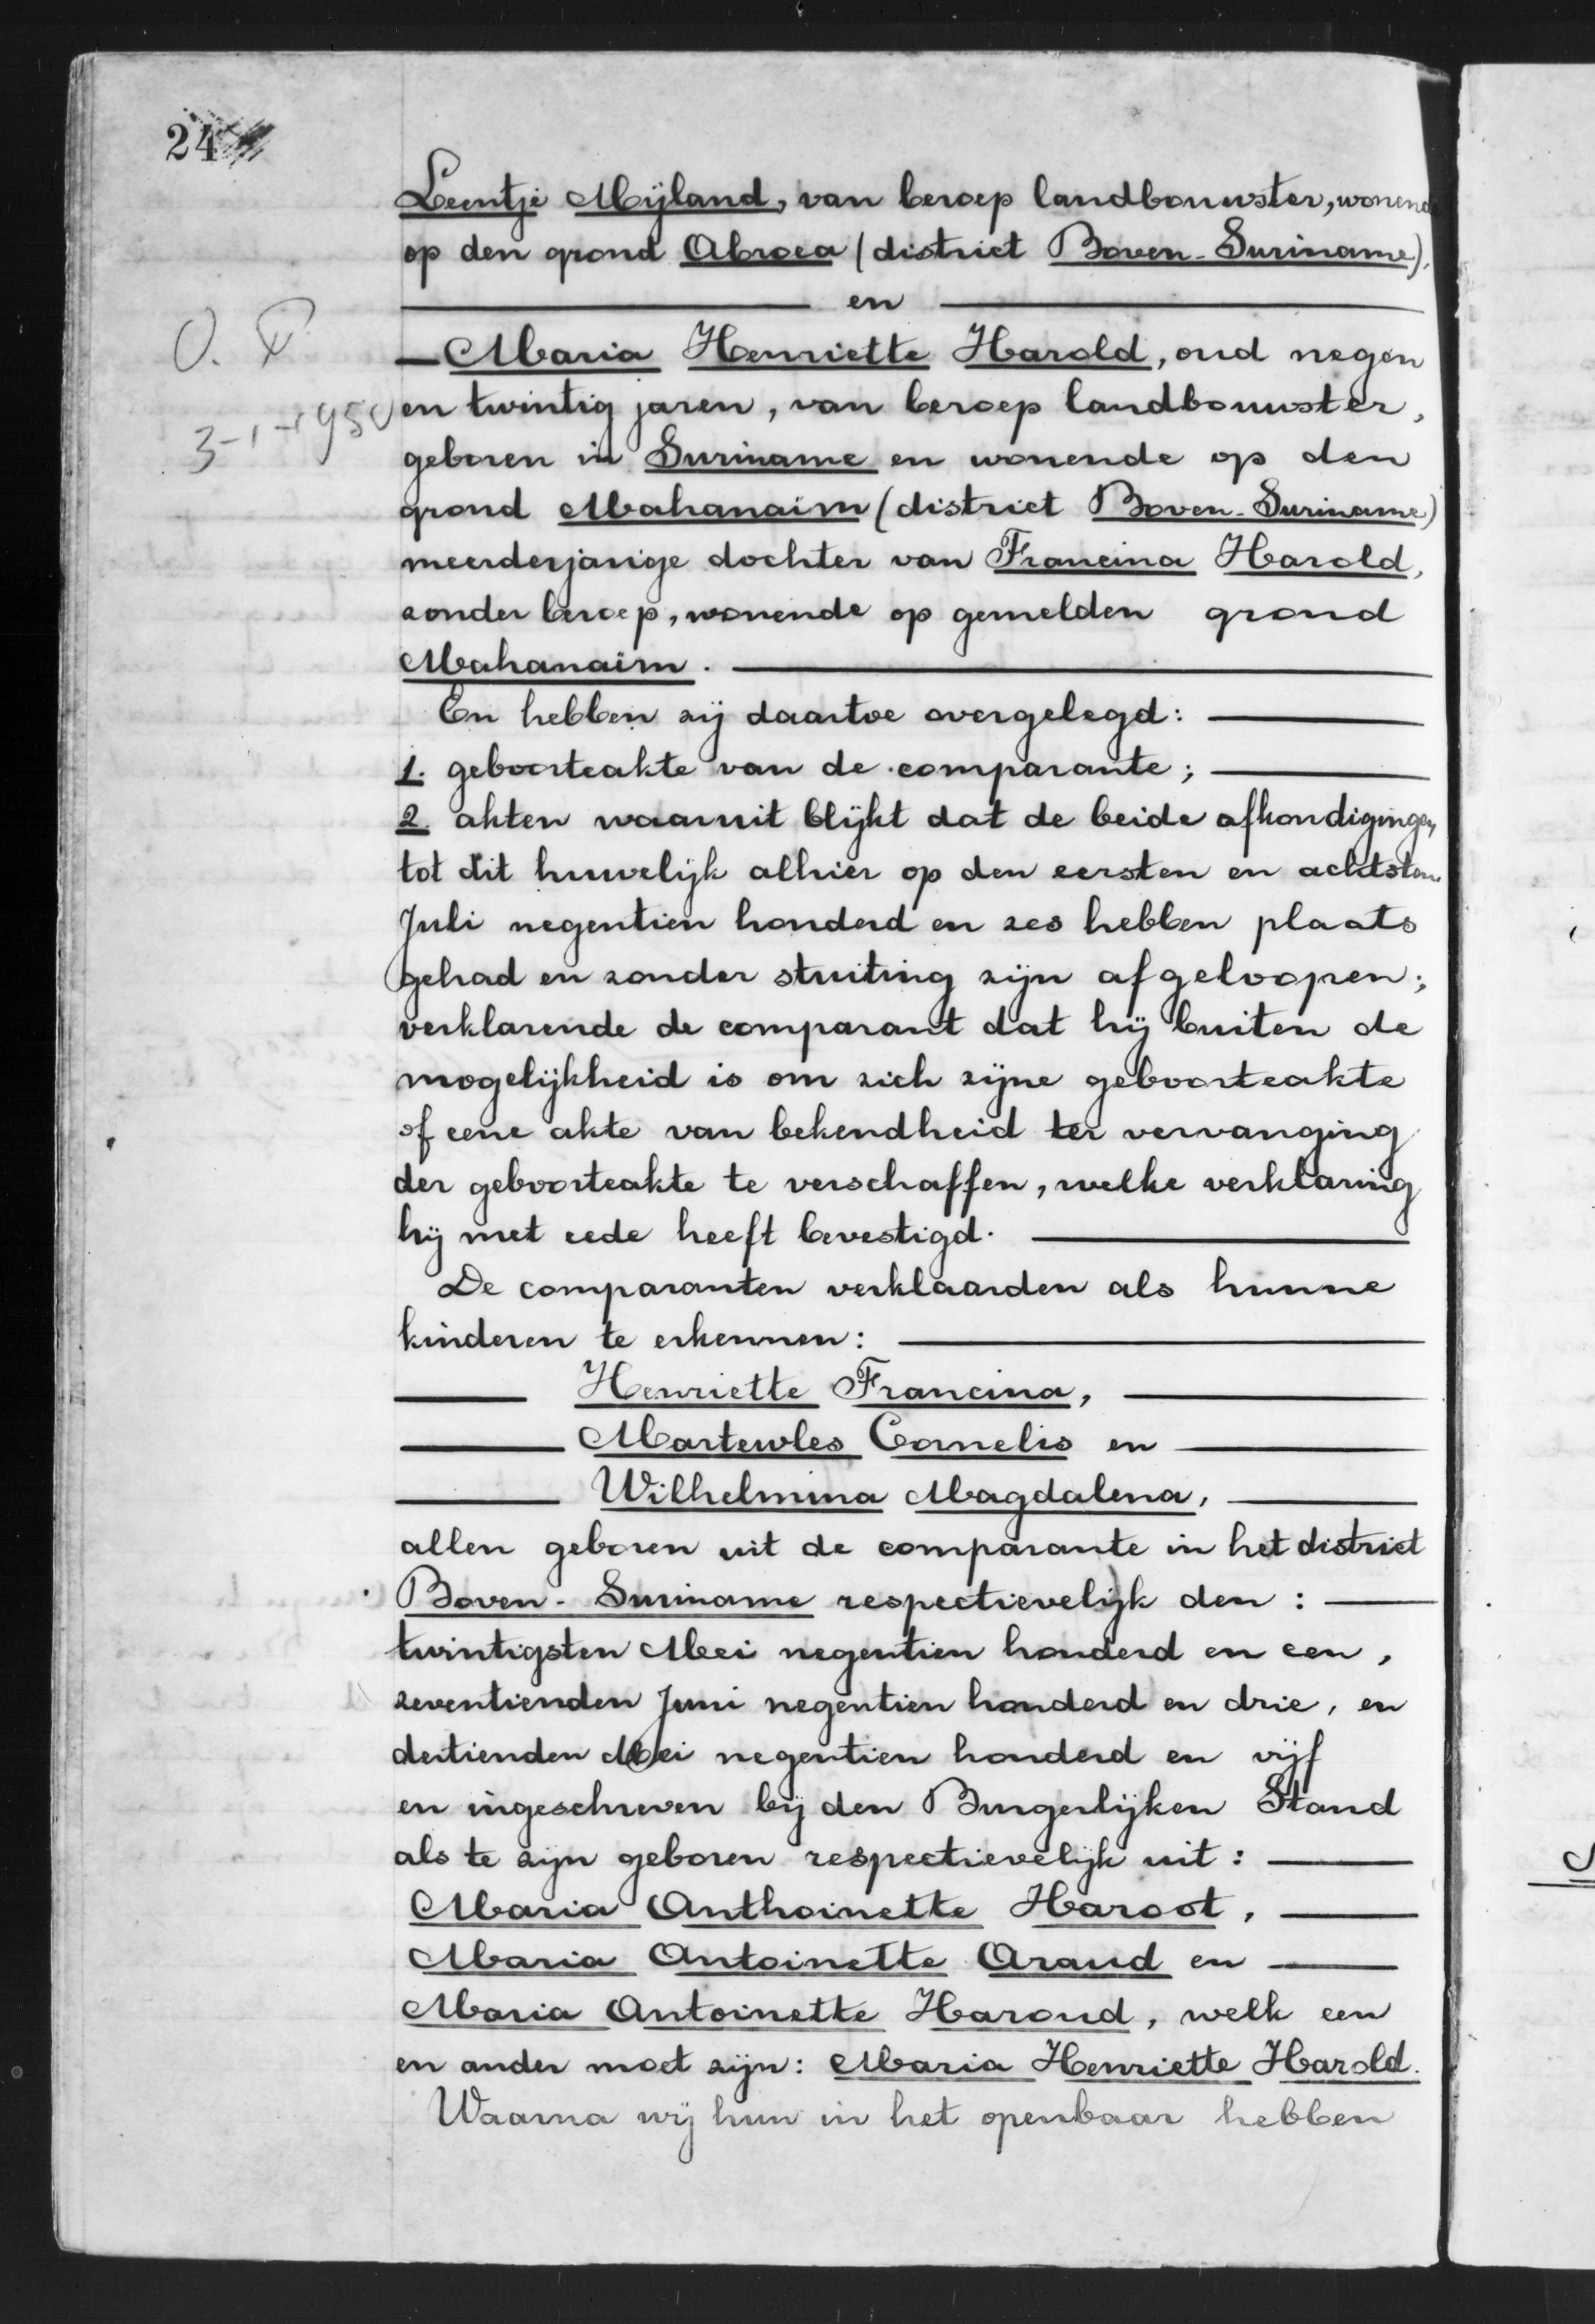 24
Leentje Mijland, van beroep landbouwster, wonende
op den grond Abroea (district Boven-Suriname),
en
O.
3-1-1950
— Maria Henriette Harold, oud negen
en twintig jaren, van beroep landbouwster,
geboren in Suriname en wonende op den
grond Mahanaim (district Boven-Suriname)
meerderjarige dochter van Francina Harold,
zonder beroep, wonende op gemelden grond
Mahanaim. —
En hebben zij daartoe overgelegd: —
1. geboorteakte van de comparante; —
2. akten waaruit blijkt dat de beide afkondigingen
tot dit huwelijk alhier op den eersten en achtsten
Juli negentien honderd en zes hebben plaats
gehad en zonder stuiting zijn afgeloopen;
verklarende de comparant dat hij buiten de
mogelijkheid is om zich zijne geboorteakte
of eene akte van bekendheid ter vervanging
der geboorteakte te verschaffen, welke verklaring
hij met eede heeft bevestigd. —
De comparanten verklaarden als hunne
kinderen te erkennen: —
— Henriette Francina, —
— Martewles Cornelis en —
— Wilhelmina Magdalena, —
allen geboren uit de comparante in het district
Boven-Suriname respectievelijk den: —
twintigsten Mei negentien honderd en een,
zeventienden Juni negentien honderd en drie, en
dertienden Mei negentien honderd en vijf
en ingeschreven bij den Burgerlijken Stand
als te zijn geboren respectievelijk uit: —
Maria Anthoinette Haroot, —
Maria Antoinette Araud en —
Maria Antoinette Haroud, welk een
en ander moet zijn: Maria Henriette Harold.
Waarna wij hun in het openbaar hebben